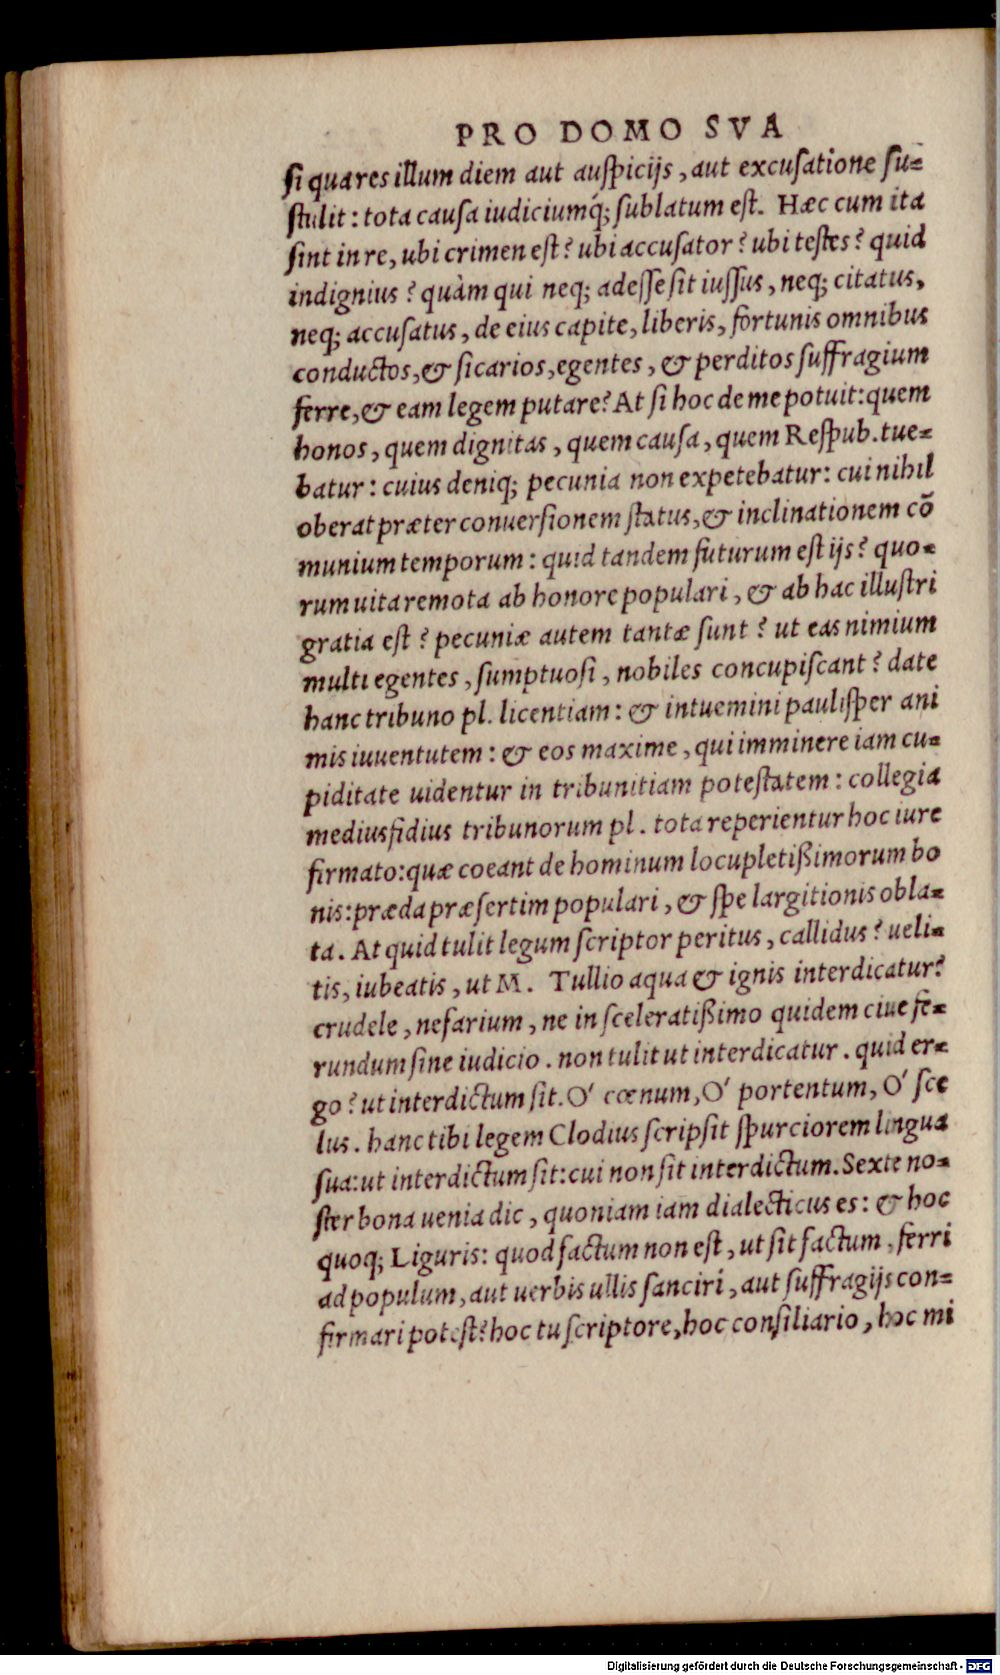 PRO DOMO SVA
si qua res illum diem aut auspicijs, aut excusatione su-
stulit: tota causa iudiciumq́; sublatum est. Hæc cum ita
sint in re, ubi crimen est? ubi accusator? ubi testes? quid
indignius? quàm qui neq; adesse sit iussus, neq; citatus,
neq; accusatus, de eius capite, liberis, fortunis omnibus
conductos, & sicarios, egentes, & perditos suffragium
ferre, & eam legem putare? At si hoc de me potuit: quem
honos, quem dignitas, quem causa, quem Respub. tue-
batur: cuius deniq; pecunia non expetebatur: cui nihil
oberat præter conuersionem status, & inclinationem cō
munium temporum: quid tandem futurum est ijs? quo-
rum uita remota ab honore populari, & ab hac illustri
gratia est? pecuniæ autem tantæ sunt? ut eas nimium
multi egentes, sumptuosi, nobiles concupiscant? date
hanc tribuno pl. licentiam: & intuemini paulisper ani
mis iuuentutem: & eos maxime, qui imminere iam cu-
piditate uidentur in tribunitiam potestatem: collegia
mediusfidius tribunorum pl. tota reperientur hoc iure
firmato: quæ coeant de hominum locupletißimorum bo
nis: præda præsertim populari, & spe largitionis obla-
ta. At quid tulit legum scriptor peritus, callidus? ueli-
tis, iubeatis, ut M. Tullio aqua & ignis interdicatur?
crudele, nefarium, ne in sceleratißimo quidem ciue fe-
rundum sine iudicio. non tulit ut interdicatur. quid er-
go? ut interdictum sit. O' cœnum, O' portentum, O' sce
lus. hanc tibi legem Clodius scripsit spurciorem lingua
sua: ut interdictum sit: cui non sit interdictum. Sexte no-
ster bona uenia dic, quoniam iam dialecticus es: & hoc
quoq; Liguris: quod factum non est, ut sit factum, ferri
ad populum, aut uerbis ullis sanciri, aut suffragijs con-
firmari potest? hoc tu scriptore, hoc consiliario, hoc mi
Digitalisierung gefördert durch die Deutsche Forschungsgemeinschaft - DFG